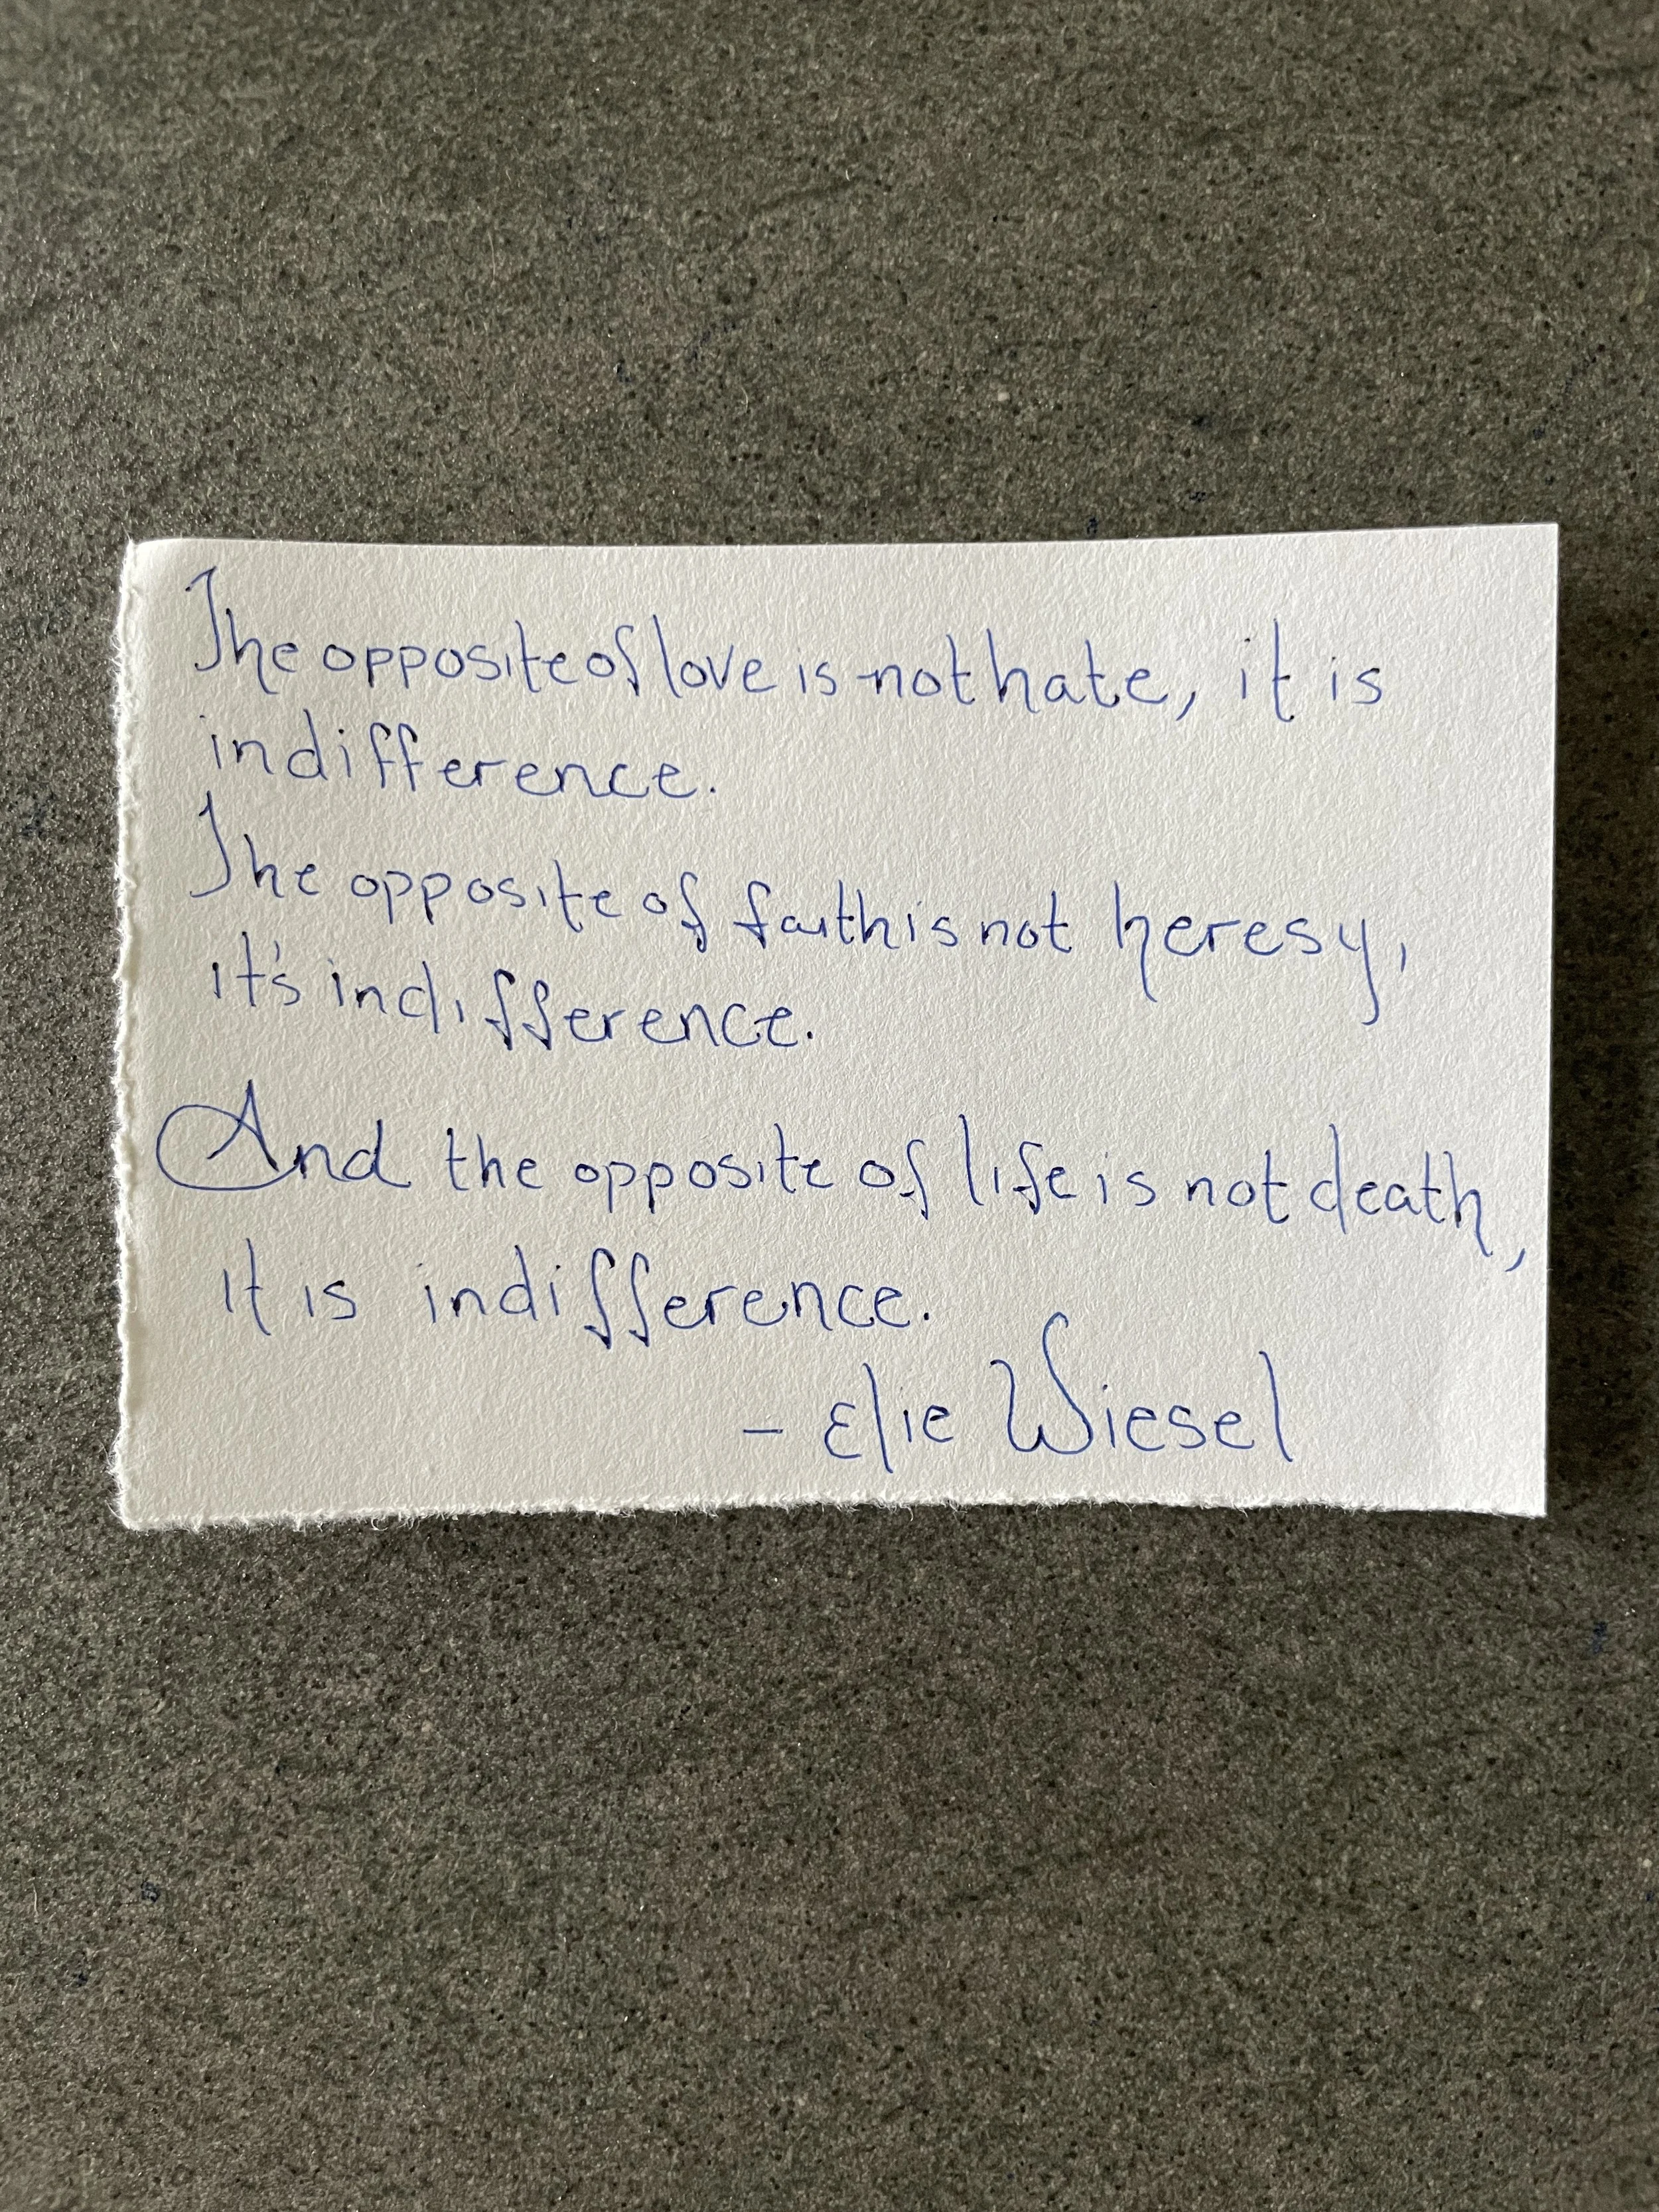 The opposite of love is not hate, it is
indifference.
The opposite of faith is not heresy,
it's indifference.
And the opposite of life is not death,
it is indifference.
- Elie Wiesel